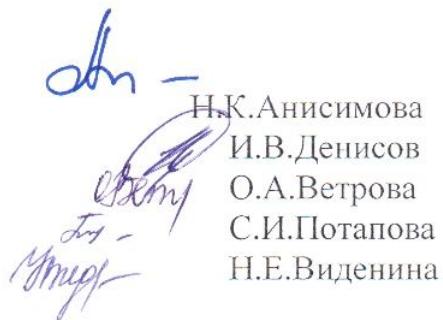 Н.К.Анисимова
И.В.Денисов
О.А.Ветрова
С.И.Потапова
Н.Е.Виденина